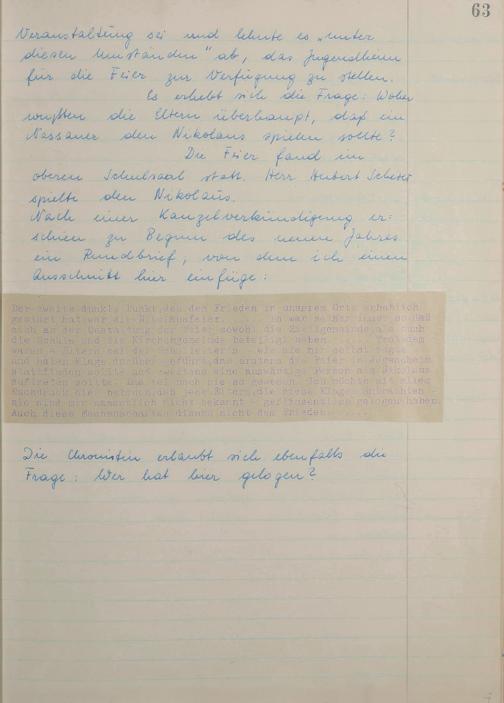 63
Veranstaltung sei und lehnte es "unter
diesen Umständen" ab, das Jugendheim
für die Feier zur Verfügung zu stellen.
Es erhebt sich die Frage: Woher
wußten die Eltern überhaupt, daß ein
Nassauer den Nikolaus spielen sollte?
Die Feier fand im
oberen Schulsaal statt. Herr Hubert
spielte den Nikolaus.
Nach einer Kanzelverkündigung er=
schien zu Beginn des neuen Jahres
ein Rundbrief, von dem ich einen
Ausschnitt hier einfüge:
Der zweite dunkle Punkt, der den Frieden in unserem Orte erheblich
gestört hat, war die Nikolausfeier.
sich an der Gestaltung der Feier sowohl die Zivilgemeinde als auch
die Schule und die Kirchengemeinde beteiligt haben. Trotzdem
waren Eltern bei der Schulleiterin
und haben Klage darüber geführt, daß erstens die Feier im Jugendheim
stattfinden sollte und zweitens eine auswärtige Person als Nikolaus
auftreten sollte.
daß jene Eltern, die diese Klage
sie sind mir namentlich nicht bekannt - gelogen haben.
Auch diese Machenschaften dienen nicht dem Frieden
Die Chronistin erlaubt sich ebenfalls die
Frage: Wer hat hier gelogen?